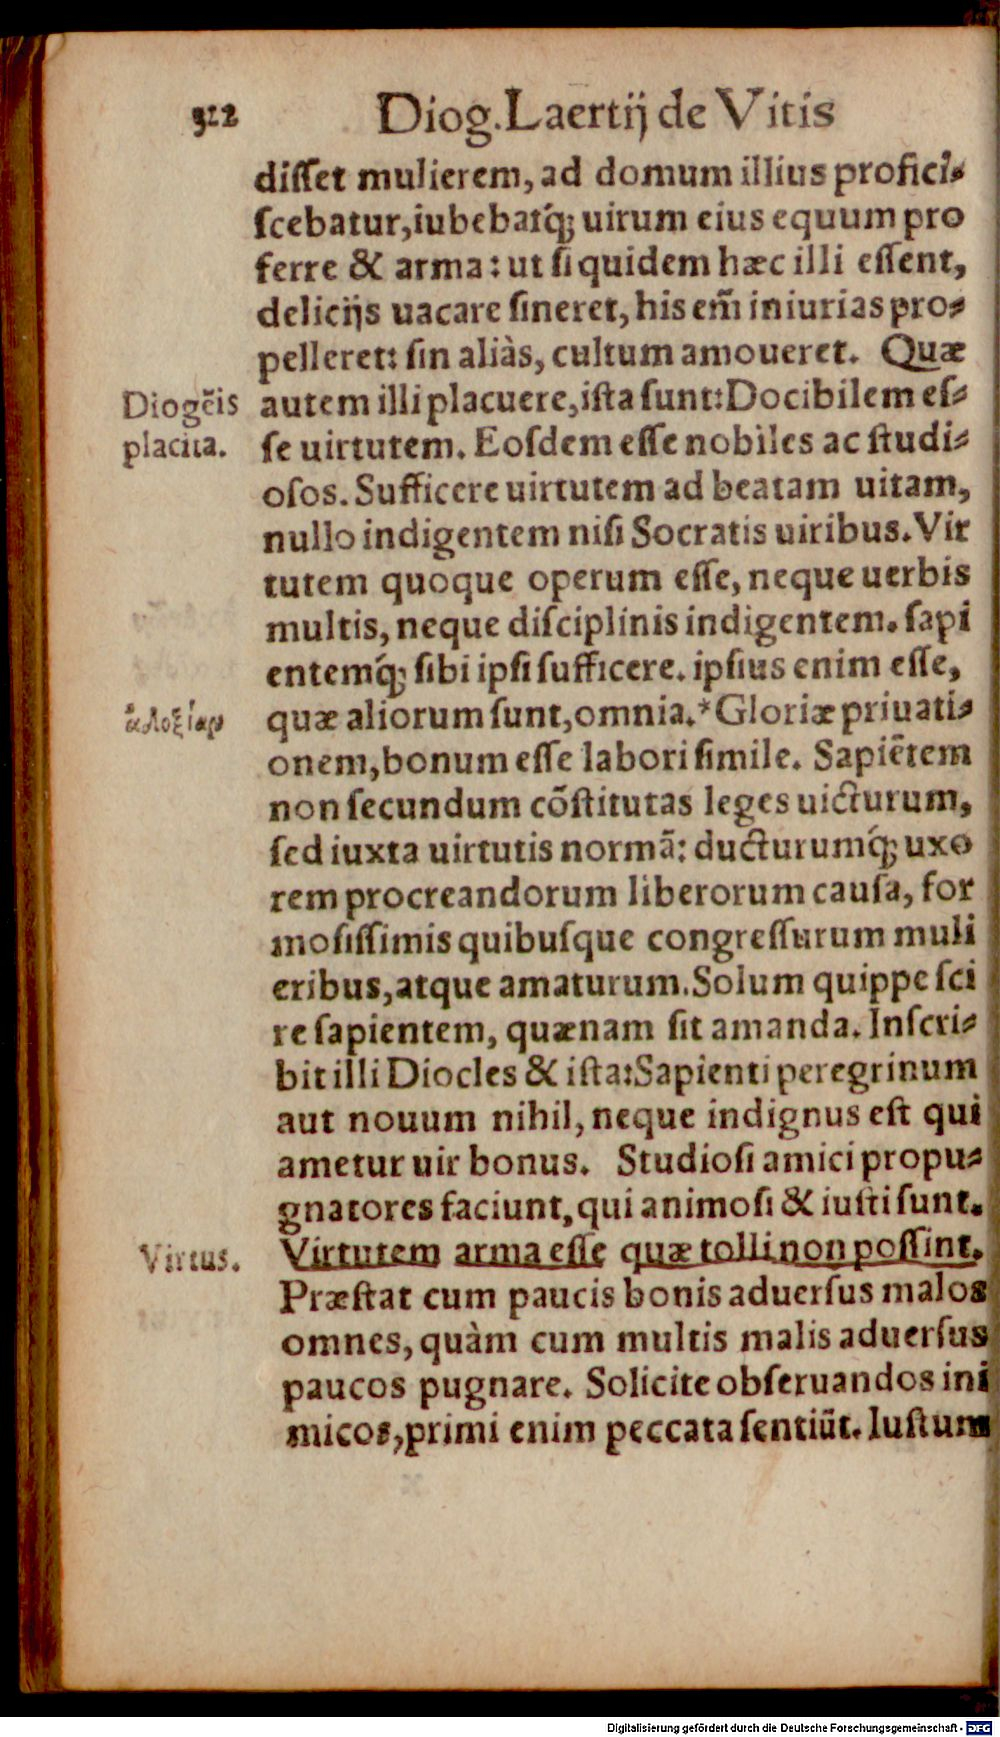 322 Diog. Laertij de Vitis
disſet mulierem, ad domum illius profici-
ſcebatur, iubebatq́; uirum eius equum pro
ferre & arma: ut ſi quidem hæc illi eſſent,
delicijs uacare ſineret, his em̃ iniurias pro-
pelleret: ſin aliàs, cultum amoueret. Quæ
Diogẽis autem illi placuere, iſta ſunt: Docibilem eſ-
placita. ſe uirtutem. Eoſdem eſſe nobiles ac ſtudi-
oſos. Sufficere uirtutem ad beatam uitam,
nullo indigentem niſi Socratis uiribus. Vir
tutem quoque operum eſſe, neque uerbis
multis, neque diſciplinis indigentem. ſapi
entemq́; ſibi ipſi ſufficere. ipſius enim eſſe,
quæ aliorum ſunt, omnia.*Gloriæ priuati-
onem, bonum eſſe labori ſimile. Sapiẽtem
non ſecundum cõſtitutas leges uicturum,
ſed iuxta uirtutis normã: ducturumq́; uxo
rem procreandorum liberorum cauſa, for
moſiſſimis quibuſque congreſſurum muli
eribus, atque amaturum. Solum quippe ſci
re ſapientem, quænam ſit amanda. Inſcri-
bit illi Diocles & iſta: Sapienti peregrinum
aut nouum nihil, neque indignus eſt qui
ametur uir bonus. Studioſi amici propu-
gnatores faciunt, qui animoſi & iuſti ſunt.
Virtus. Virtutem arma eſſe quæ tolli non poſſint.
Præſtat cum paucis bonis aduerſus malos
omnes, quàm cum multis malis aduerſus
paucos pugnare. Solicite obſeruandos ini
micos, primi enim peccata ſentiũt. Iuſtum
Digitalisierung gefördert durch die Deutsche Forschungsgemeinschaft - DFG